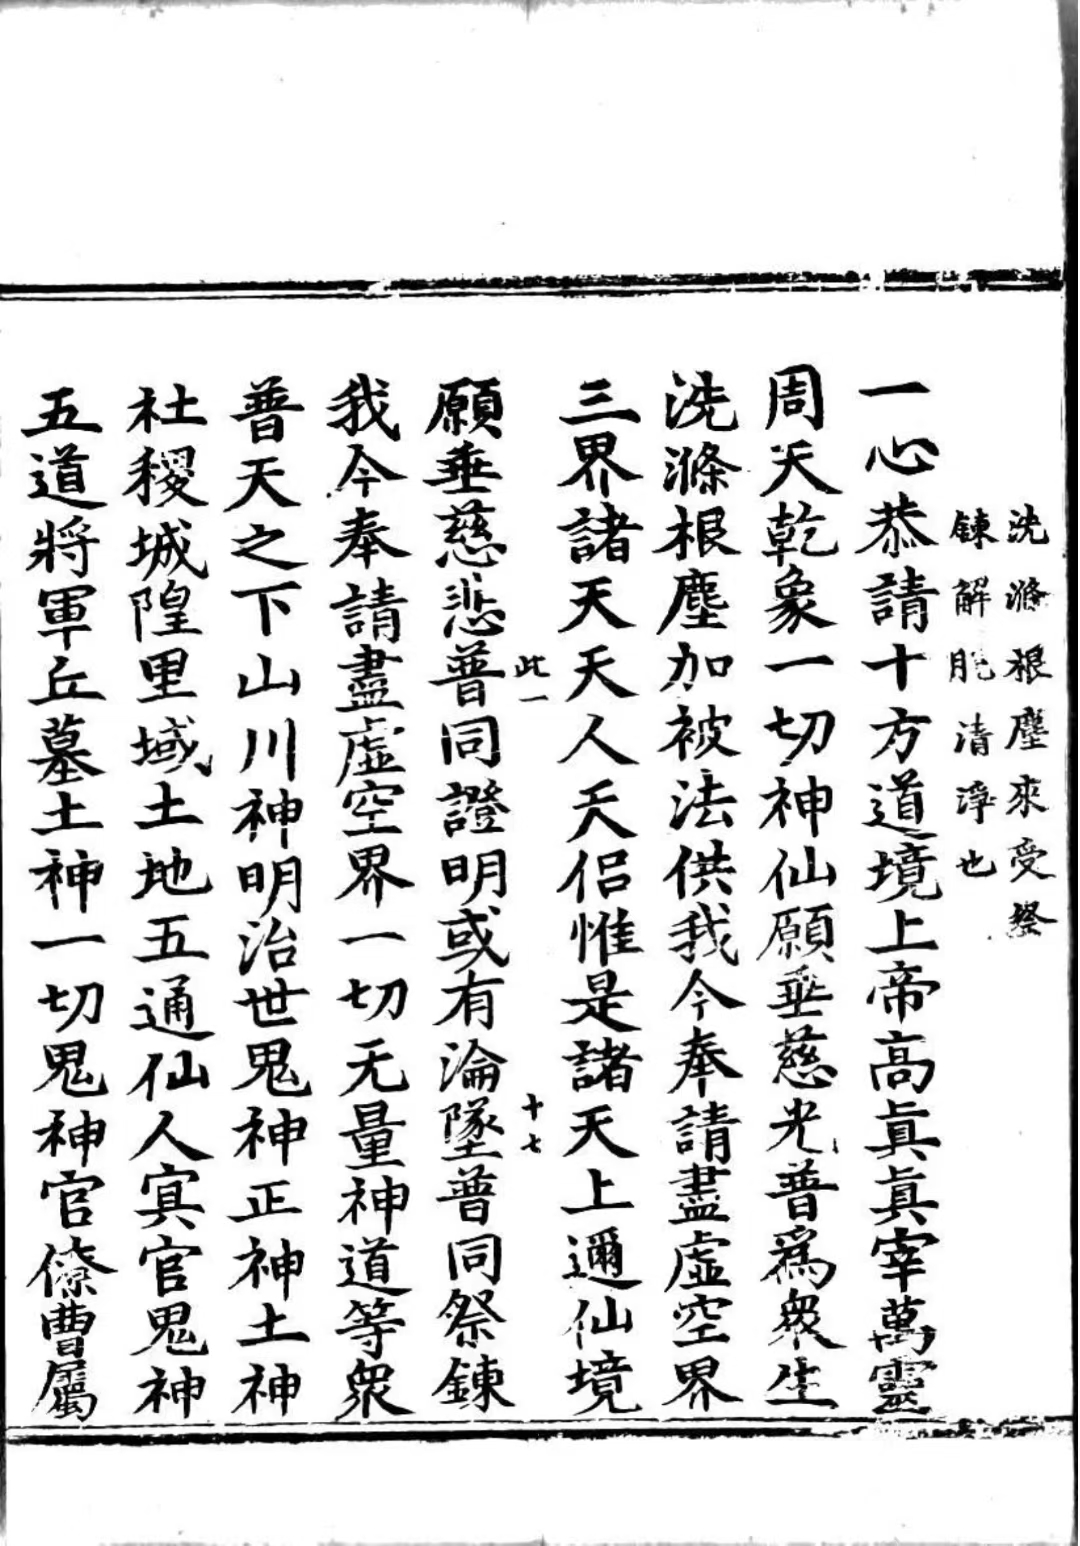 洗滌根塵來受祭
鍊解脫清淨也
一心恭請十方道境上帝高眞眞宰萬靈
周天乾象一切神仙願垂慈光普爲衆生
洗滌根塵加被法供我今奉請盡虛空界
三界諸天天人天侶惟是諸天上邇仙境
此一
十七
願垂慈悲普同證明或有淪墜普同祭鍊
我今奉請盡虛空界一切无量神道等衆
普天之下山川神明治世鬼神正神土神
社稷城隍里域土地五通仙人寘官鬼神
五道將軍丘墓土神一切鬼神官僚曹屬